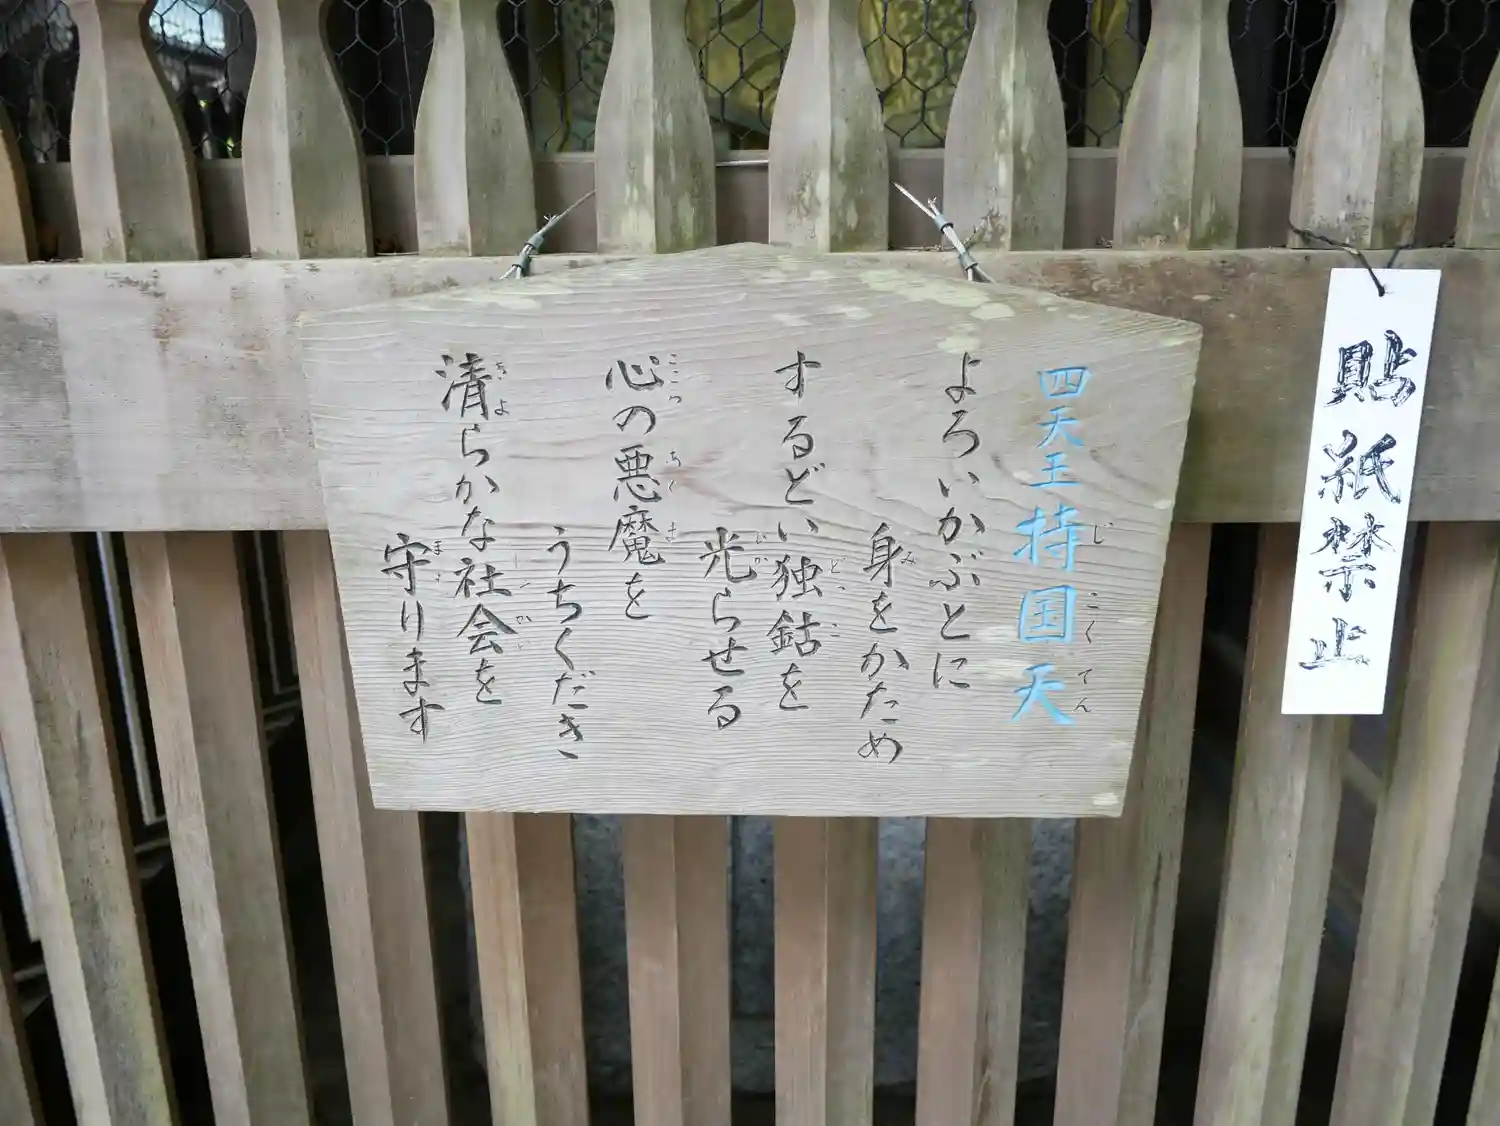 四天王持国天
よろいかぶとに
身をかため
するどい独鈷を
光らせる
心の悪魔を
うちくだき
清らかな社会を
守ります
貼紙禁止